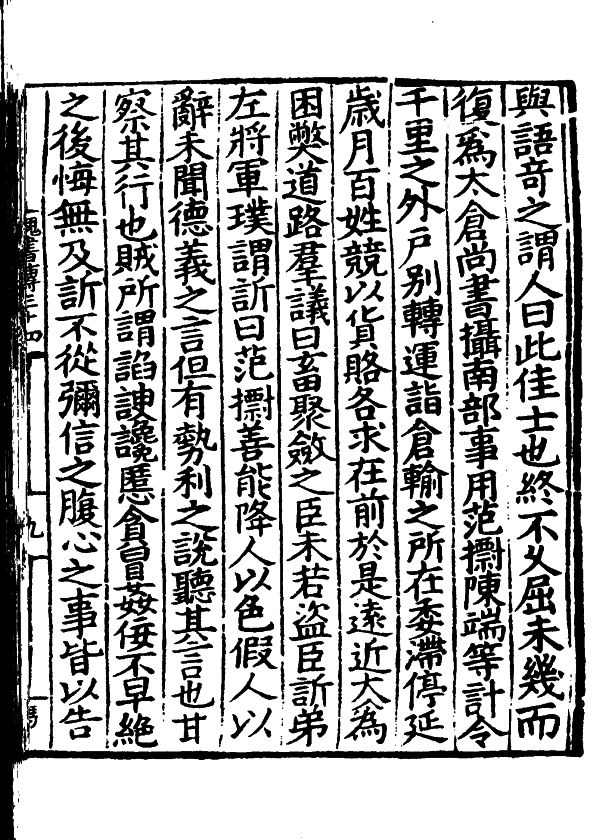 與語竒之謂人曰此佳士也終不乆屈未幾而
復爲太倉尚書攝南部事用范㩽陳端等計令
千里之外戸別轉運詣倉輸之所在委滯停延
歳月百姓競以貨賂各求在前於是逺近大爲
困弊道路羣議曰畜聚斂之臣未若盗臣訢弟
左將軍璞謂訢曰范㩽善能降人以色假人以
辭未聞德義之言但有勢利之說聽其言也甘
察其行也賊所謂諂諛讒慝貪冒姦佞不早絶
之後悔無及訢不從彌信之腹心之事皆以告
魏書傳三十四
九